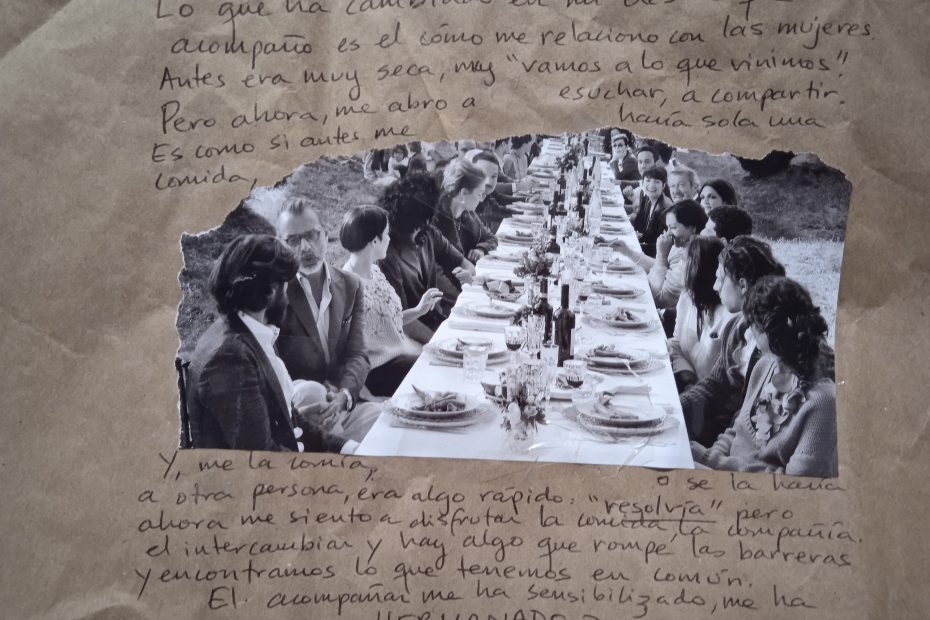 Lo que ha cambiado en mi
acompaño es el cómo me relaciono con las mujeres.
Antes era muy seca, muy "vamos a lo que vinimos".
Pero ahora, me abro a esuchar, a compartir.
Es como si antes me hacía sola una
comida,
Y, me la comía,
o se la hacía
a otra persona, era algo rápido: "resolvía" pero
ahora me siento a disfrutar la comida, la compañía.
el intercambiar y hay algo que rompe las barreras
y encontramos lo que tenemos en común.
El acompañar me ha sensibilizado, me ha